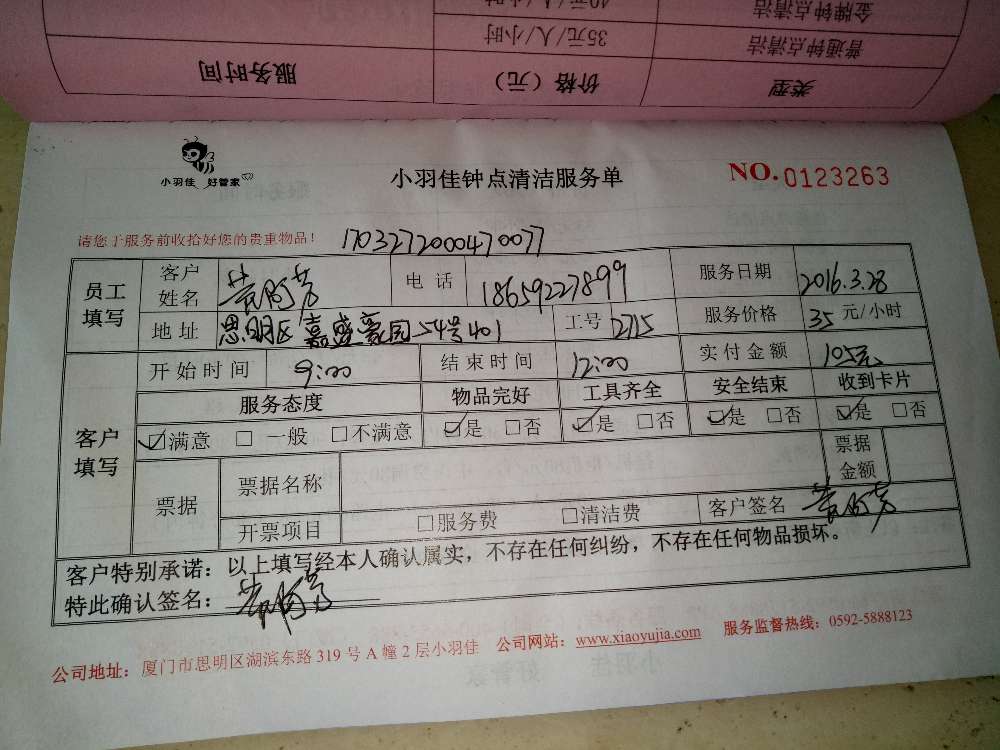 金牌钟点清洁 40元/人/小时
普通钟点清洁 35元/人/小时
类型 价格（元） 服务时间
小羽佳 好管家
小羽佳钟点清洁服务单
NO.0123263
请您于服务前收拾好您的贵重物品！
170327200470077
员工填写 客户姓名 电话 18659227899 服务日期 2016.3.28
地址 思明区嘉盛豪园54号401 工号 D715 服务价格 35 元/小时
客户填写 开始时间 9:00 结束时间 12:00 实付金额 105元
服务态度 物品完好 工具齐全 安全结束 收到卡片
☑满意 □一般 □不满意 ☑是 □否 ☑是 □否 ☑是 □否 ☑是 □否
票据 票据名称 票据金额
开票项目 □服务费 □清洁费 客户签名
客户特别承诺：以上填写经本人确认属实，不存在任何纠纷，不存在任何物品损坏。
特此确认签名：
公司地址：厦门市思明区湖滨东路 319 号 A 幢 2 层小羽佳 公司网站：www.xiaoyujia.com 服务监督热线：0592-5888123